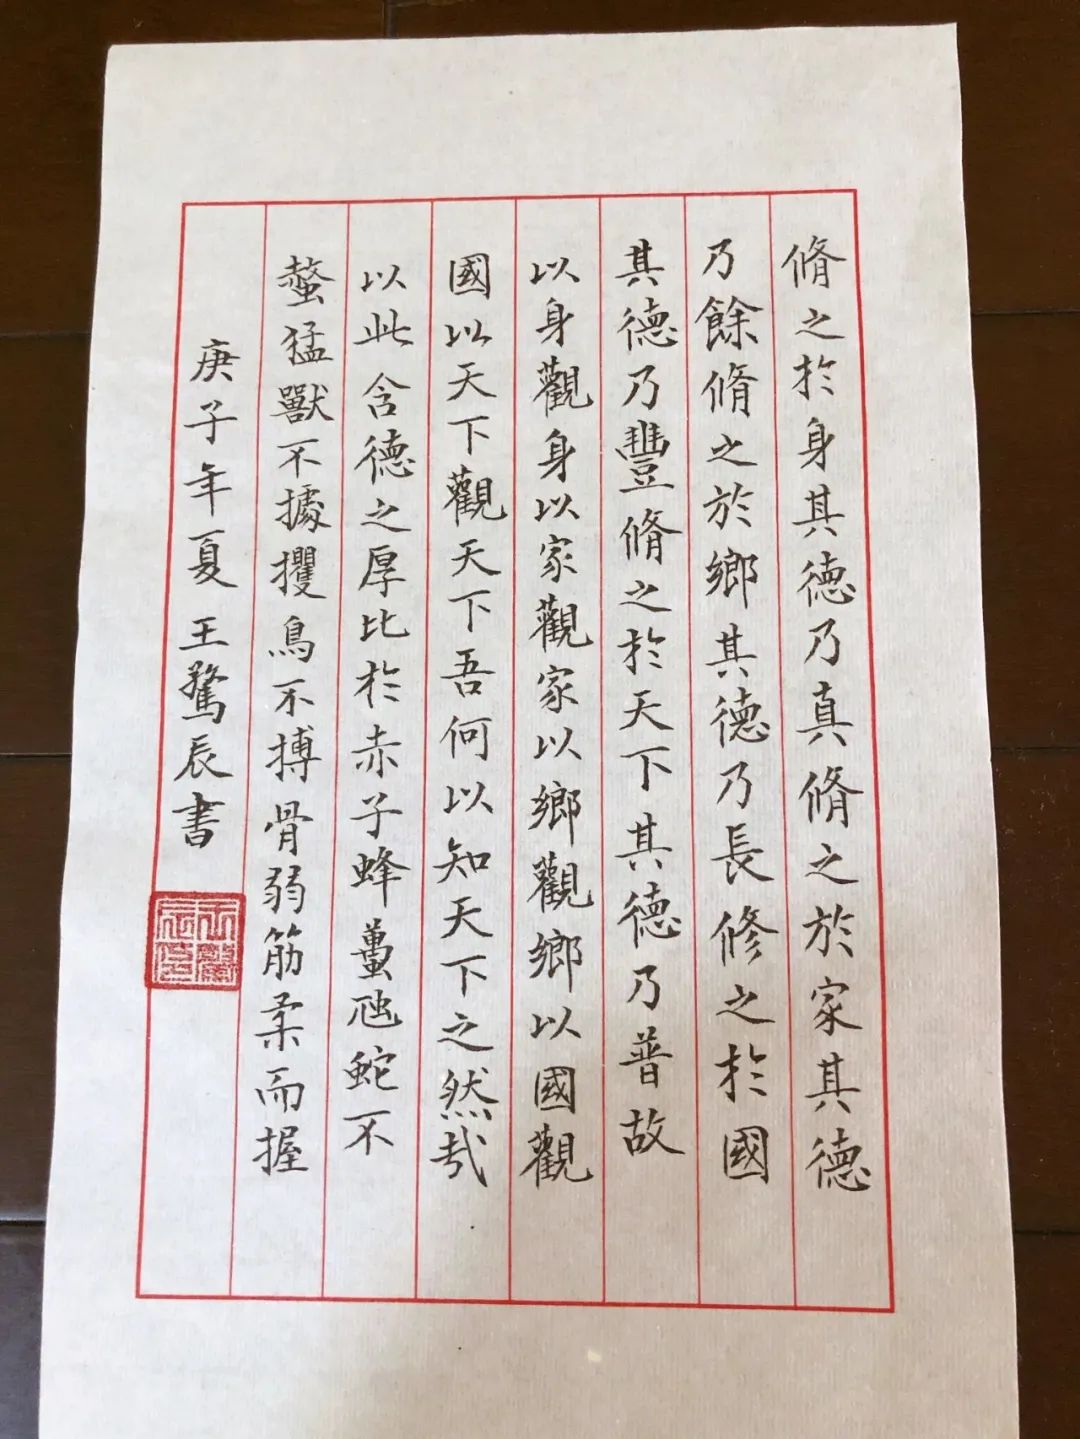 脩之於身其德乃真脩之於家其德
乃餘脩之於鄉其德乃長修之於國
其德乃豐脩之於天下其德乃普故
以身觀身以家觀家以鄉觀鄉以國觀
國以天下觀天下吾何以知天下之然哉
以此含德之厚比於赤子蜂蠆虺蛇不
螫猛獸不據攫鳥不搏骨弱筋柔而握
庚子年夏王驁辰書